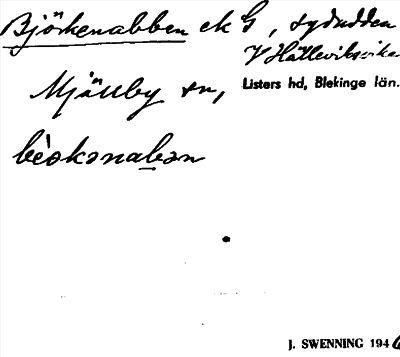 Björkenabben ek G, sydudden
V Hälleviksviken
Mjällby sn, Listers hd, Blekinge län.
bèəkənaban
J. SWENNING 1946